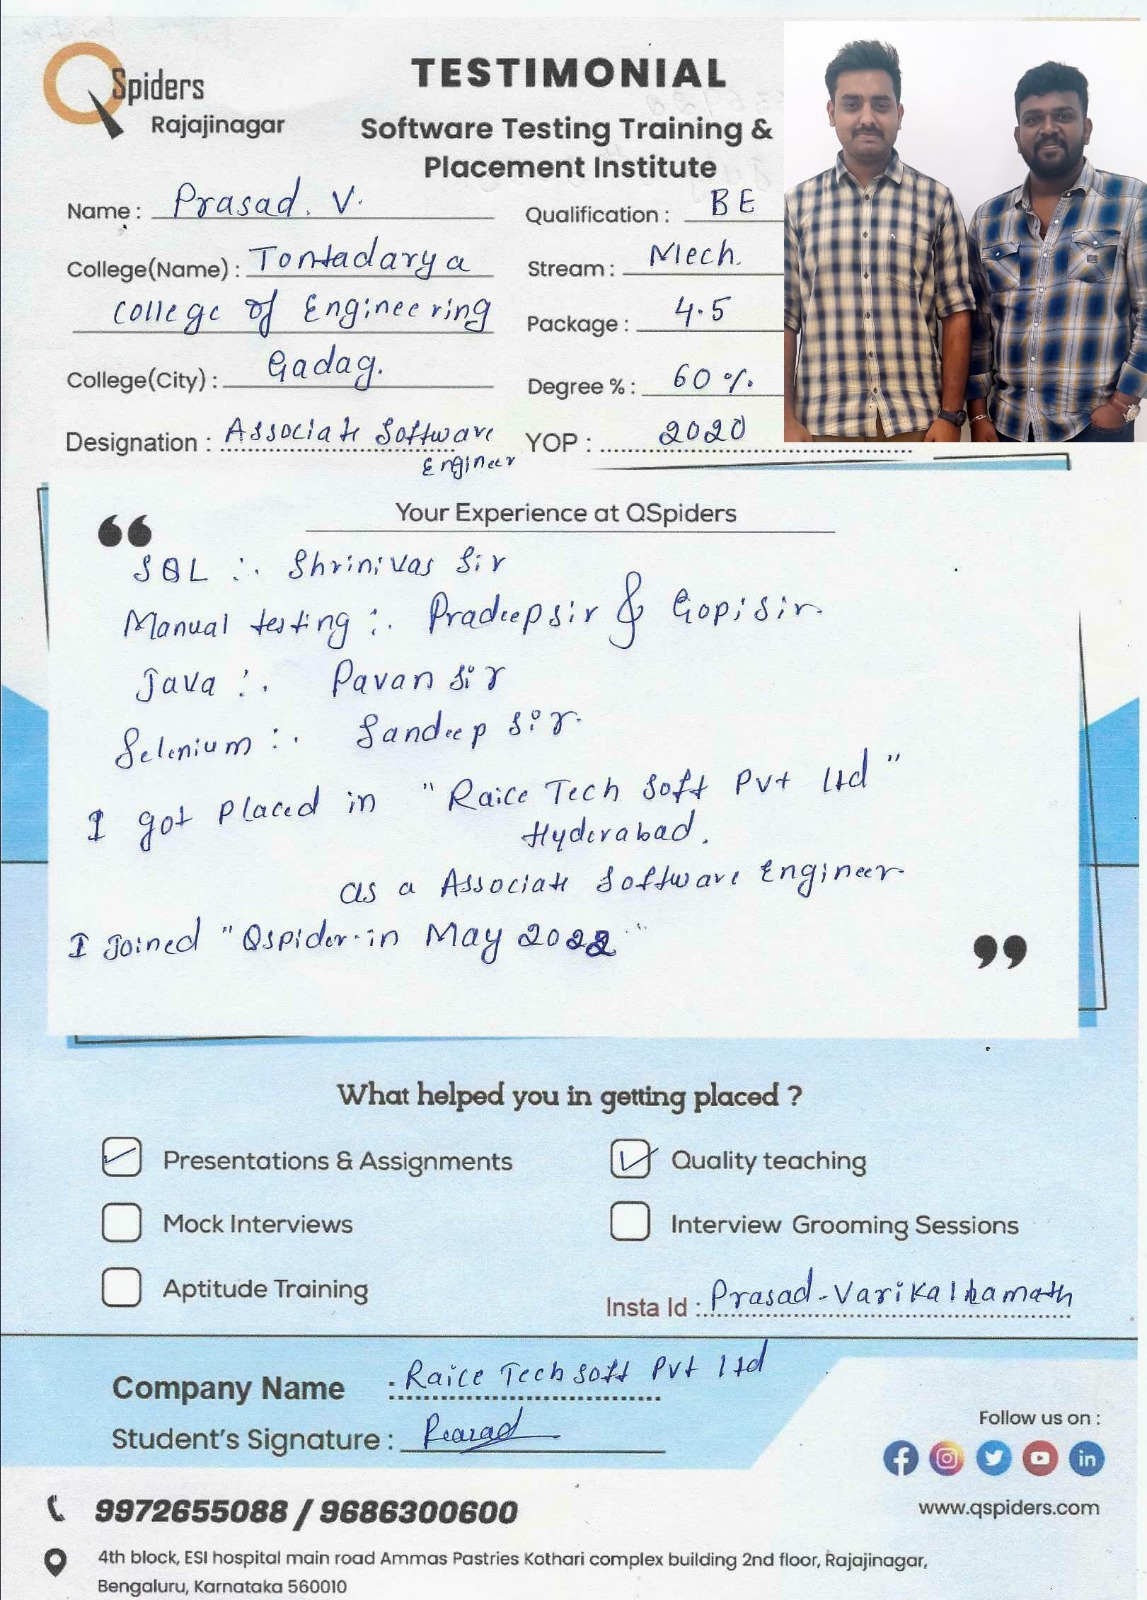 QSpiders
Rajajinagar
TESTIMONIAL
Software Testing Training &
Placement Institute
Name : Prasad. V.
Qualification : BE
College(Name) : Tontadarya
College of Engineering
Stream : Mech.
Package : 4.5
College(City) : Gadag.
Degree % : 60 %.
Designation : Associate Software
Engineer
YOP : 2020
Your Experience at QSpiders
“
SQL :. Shrinivas Sir
Manual testing :. Pradeep sir & Gopi sir.
Java :. Pavan sir
Selenium :. Sandeep sir.
I got placed in "Raice Tech Soft Pvt Ltd"
Hyderabad.
as a Associate Software Engineer.
I Joined "Qspider.in May 2022"
”
What helped you in getting placed ?
Presentations & Assignments
Quality teaching
Mock Interviews
Interview Grooming Sessions
Aptitude Training
Insta Id : Prasad-Varikalhamath
Company Name : Raice Tech Soft Pvt Ltd
Student's Signature : Prasad
Follow us on :
9972655088 / 9686300600
www.qspiders.com
4th block, ESI hospital main road Ammas Pastries Kothari complex building 2nd floor, Rajajinagar,
Bengaluru, Karnataka 560010